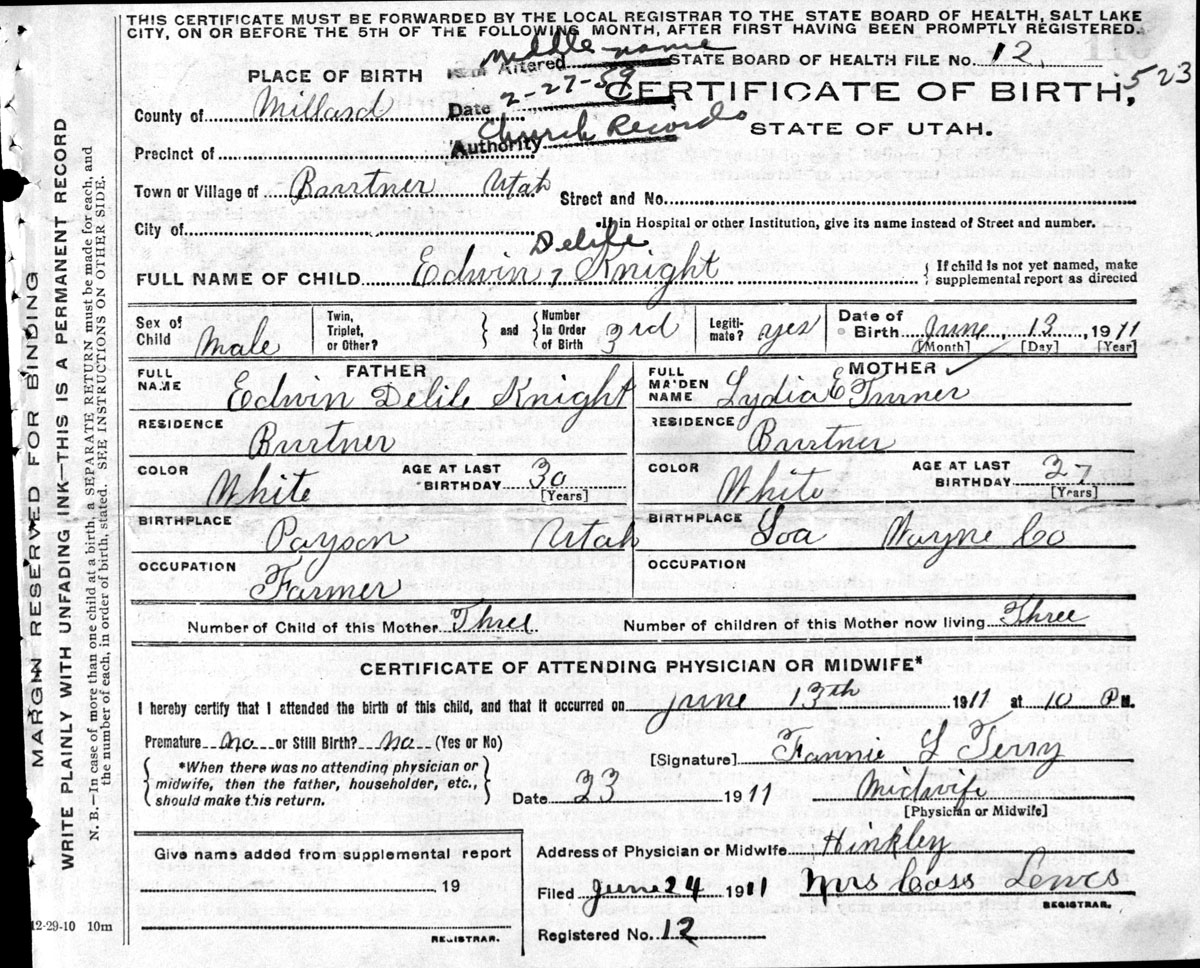 THIS CERTIFICATE MUST BE FORWARDED BY THE LOCAL REGISTRAR TO THE STATE BOARD OF HEALTH, SALT LAKE
CITY, ON OR BEFORE THE 5TH OF THE FOLLOWING MONTH, AFTER FIRST HAVING BEEN PROMPTLY REGISTERED.
middle name
Item Altered
STATE BOARD OF HEALTH FILE No. 12.
523
PLACE OF BIRTH
Date 2-27-59
CERTIFICATE OF BIRTH,
County of Millard
Authority Church Records
STATE OF UTAH.
Precinct of
Town or Village of Burtner Utah
Street and No.
City of
If in Hospital or other Institution, give its name instead of Street and number.
Delile
FULL NAME OF CHILD Edwin, Knight
{ If child is not yet named, make
supplemental report as directed
Sex of Child Male
Twin, Triplet, or Other?
and
Number in Order of Birth 3rd
Legitimate? yes
Date of Birth June, 13, 1911
[Month] [Day] [Year]
FATHER
FULL NAME Edwin Delile Knight
MOTHER
FULL MAIDEN NAME Lydia E Turner
RESIDENCE Burtner
RESIDENCE Burtner
COLOR White
AGE AT LAST BIRTHDAY 30
[Years]
COLOR White
AGE AT LAST BIRTHDAY 27
[Years]
BIRTHPLACE Payson Utah
BIRTHPLACE Loa Wayne Co
OCCUPATION Farmer
OCCUPATION
Number of Child of this Mother Three
Number of children of this Mother now living Three
CERTIFICATE OF ATTENDING PHYSICIAN OR MIDWIFE*
I hereby certify that I attended the birth of this child, and that it occurred on June 13th 1911 at 10 PM.
Premature no or Still Birth? no (Yes or No)
{ *When there was no attending physician or
midwife, then the father, householder, etc.,
should make this return. }
[Signature] Fannie L Terry
Date 23 1911 Midwife
[Physician or Midwife]
Give name added from supplemental report
19
REGISTRAR.
Address of Physician or Midwife Hinkley
Filed June 24 1911 Mrs Cass Lewis
REGISTRAR.
Registered No. 12
12-29-10 10m
MARGIN RESERVED FOR BINDING
WRITE PLAINLY WITH UNFADING INK—THIS IS A PERMANENT RECORD
N. B.—In case of more than one child at a birth, a SEPARATE RETURN must be made for each, and
the number of each, in order of birth, stated. SEE INSTRUCTIONS ON OTHER SIDE.